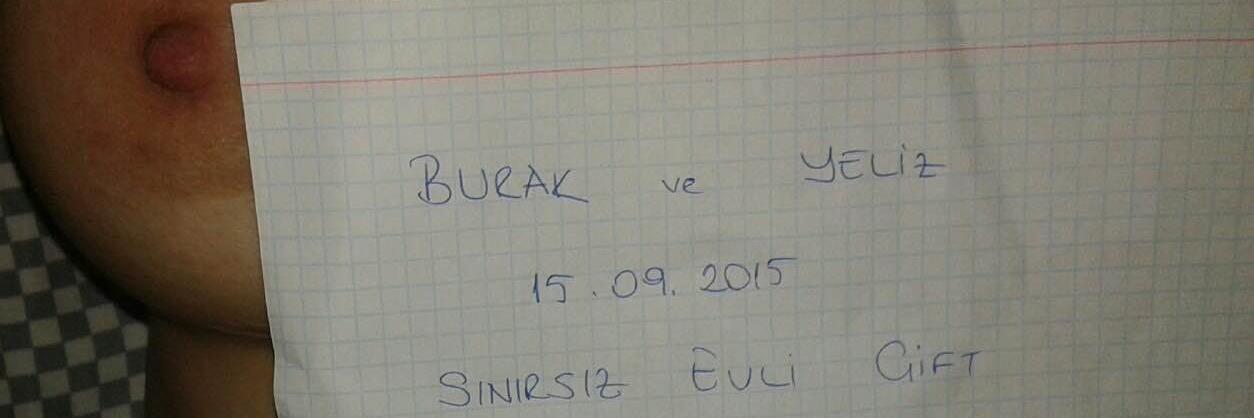 BURAK ve YELİZ
15.09.2015
SINIRSIZ EVLİ ÇİFT